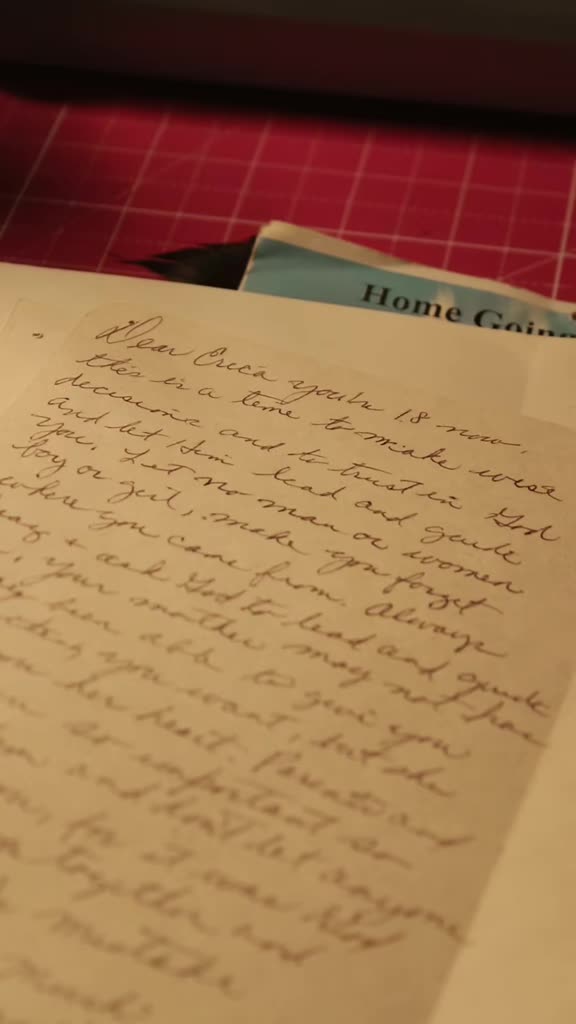 Home Going
Dear Erica you're 18 now,
this is a time to make wise
decisions and to trust in God
and let Him lead and guide
you. Let no man or women
boy or girl, make you forget
where you came from. Always
& ask God to lead and guide
your mother may not have
been able to give you
you want, but she
her heart. Parents and
so important so
and don't let anyone
for it was God
together and
mistake